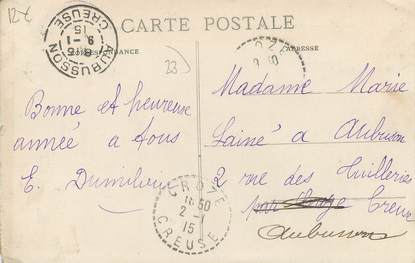 12€
CARTE POSTALE
CORRESPONDANCE
ADRESSE
AUBUSSON
9-1
15
CREUSE
CROZE
23
Bonne et heureuse
année a tous
E.
Madame Marie
Lainé a Aubuson
2 rue des Tuilleries
par Croze Creuse
Aubuson
CROZE
18 50
2-1
15
CREUSE